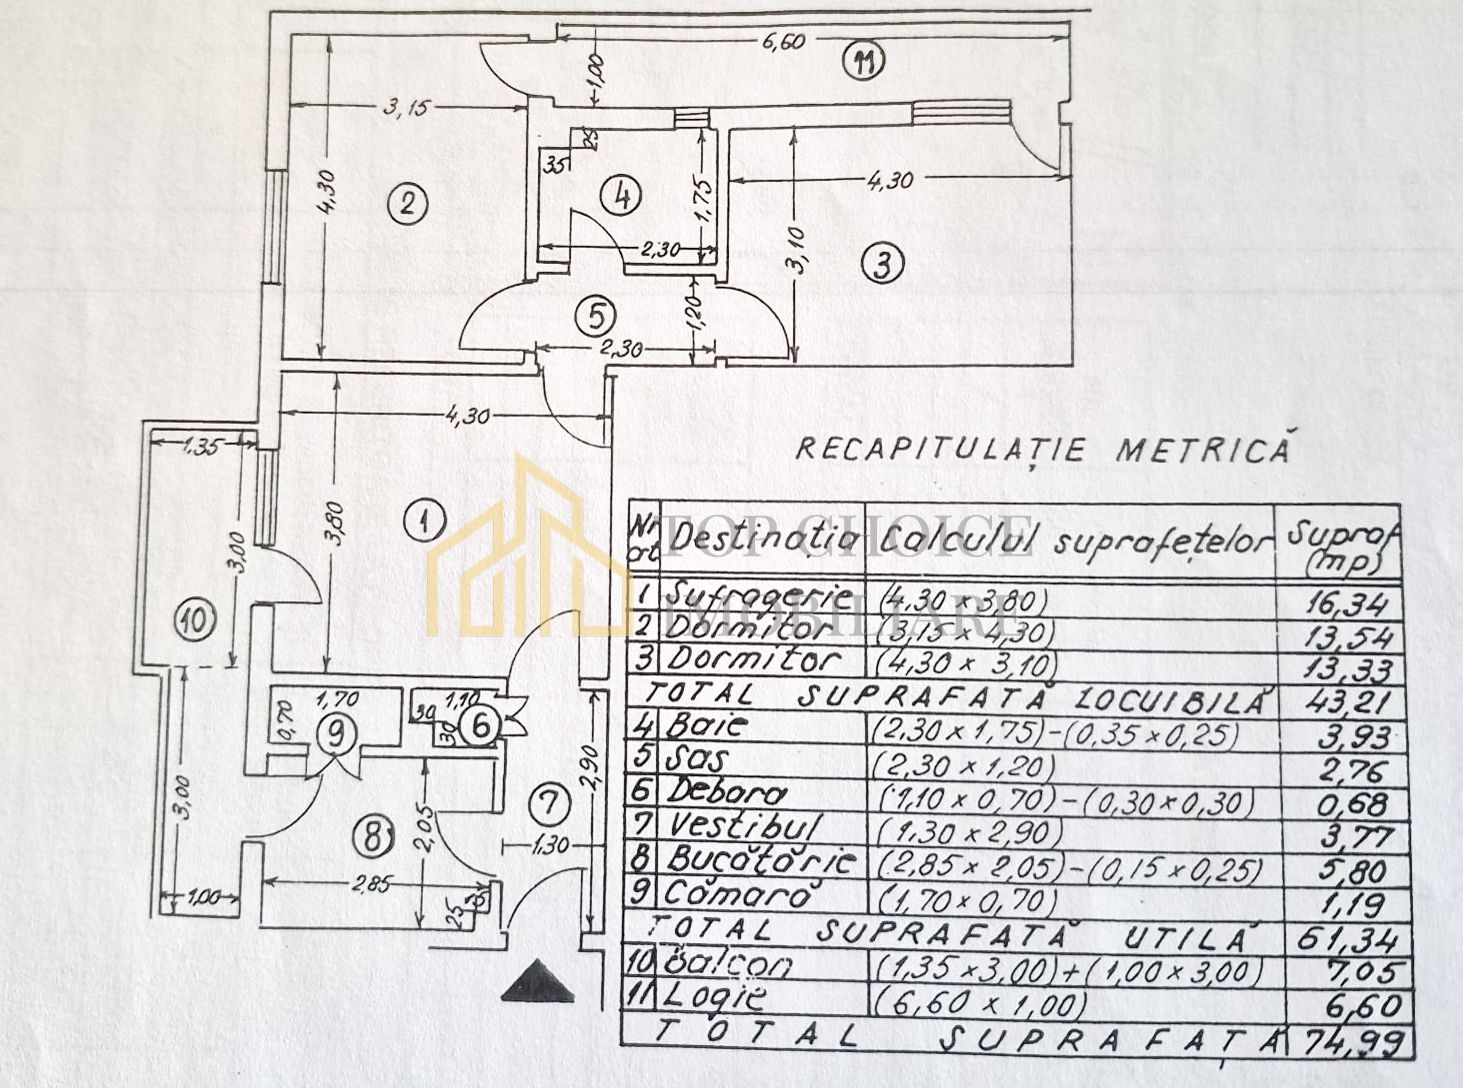 6,60
11
1,00
3,15
25
35
4,30
2
4
1,75
4,30
2,30
3,10
3
5
1,20
2,30
4,30
1,35
3,80
1
3,00
10
1,70
1,10
0,70
9
30
30
6
2,90
3,00
8
2,05
7
1,30
2,85
1,00
25
15
RECAPITULAȚIE METRICĂ
Nr. crt Destinația Calculul suprafețelor Supraf (mp)
1 Sufragerie (4,30 x 3,80) 16,34
2 Dormitor (3,15 x 4,30) 13,54
3 Dormitor (4,30 x 3,10) 13,33
TOTAL SUPRAFAȚĂ LOCUIBILĂ 43,21
4 Baie (2,30 x 1,75)-(0,35 x 0,25) 3,93
5 Sas (2,30 x 1,20) 2,76
6 Debara (1,10 x 0,70)-(0,30 x 0,30) 0,68
7 Vestibul (1,30 x 2,90) 3,77
8 Bucătărie (2,85 x 2,05)-(0,15 x 0,25) 5,80
9 Cămară (1,70 x 0,70) 1,19
TOTAL SUPRAFAȚĂ UTILĂ 61,34
10 Balcon (1,35 x 3,00)+(1,00 x 3,00) 7,05
11 Logie (6,60 x 1,00) 6,60
TOTAL SUPRAFAȚĂ 74,99
TOP CHOICE
IMOBILIARE